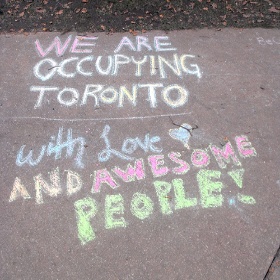 WE ARE
OCCUPYING
TORONTO
with Love
AND AWESOME
PEOPLE!